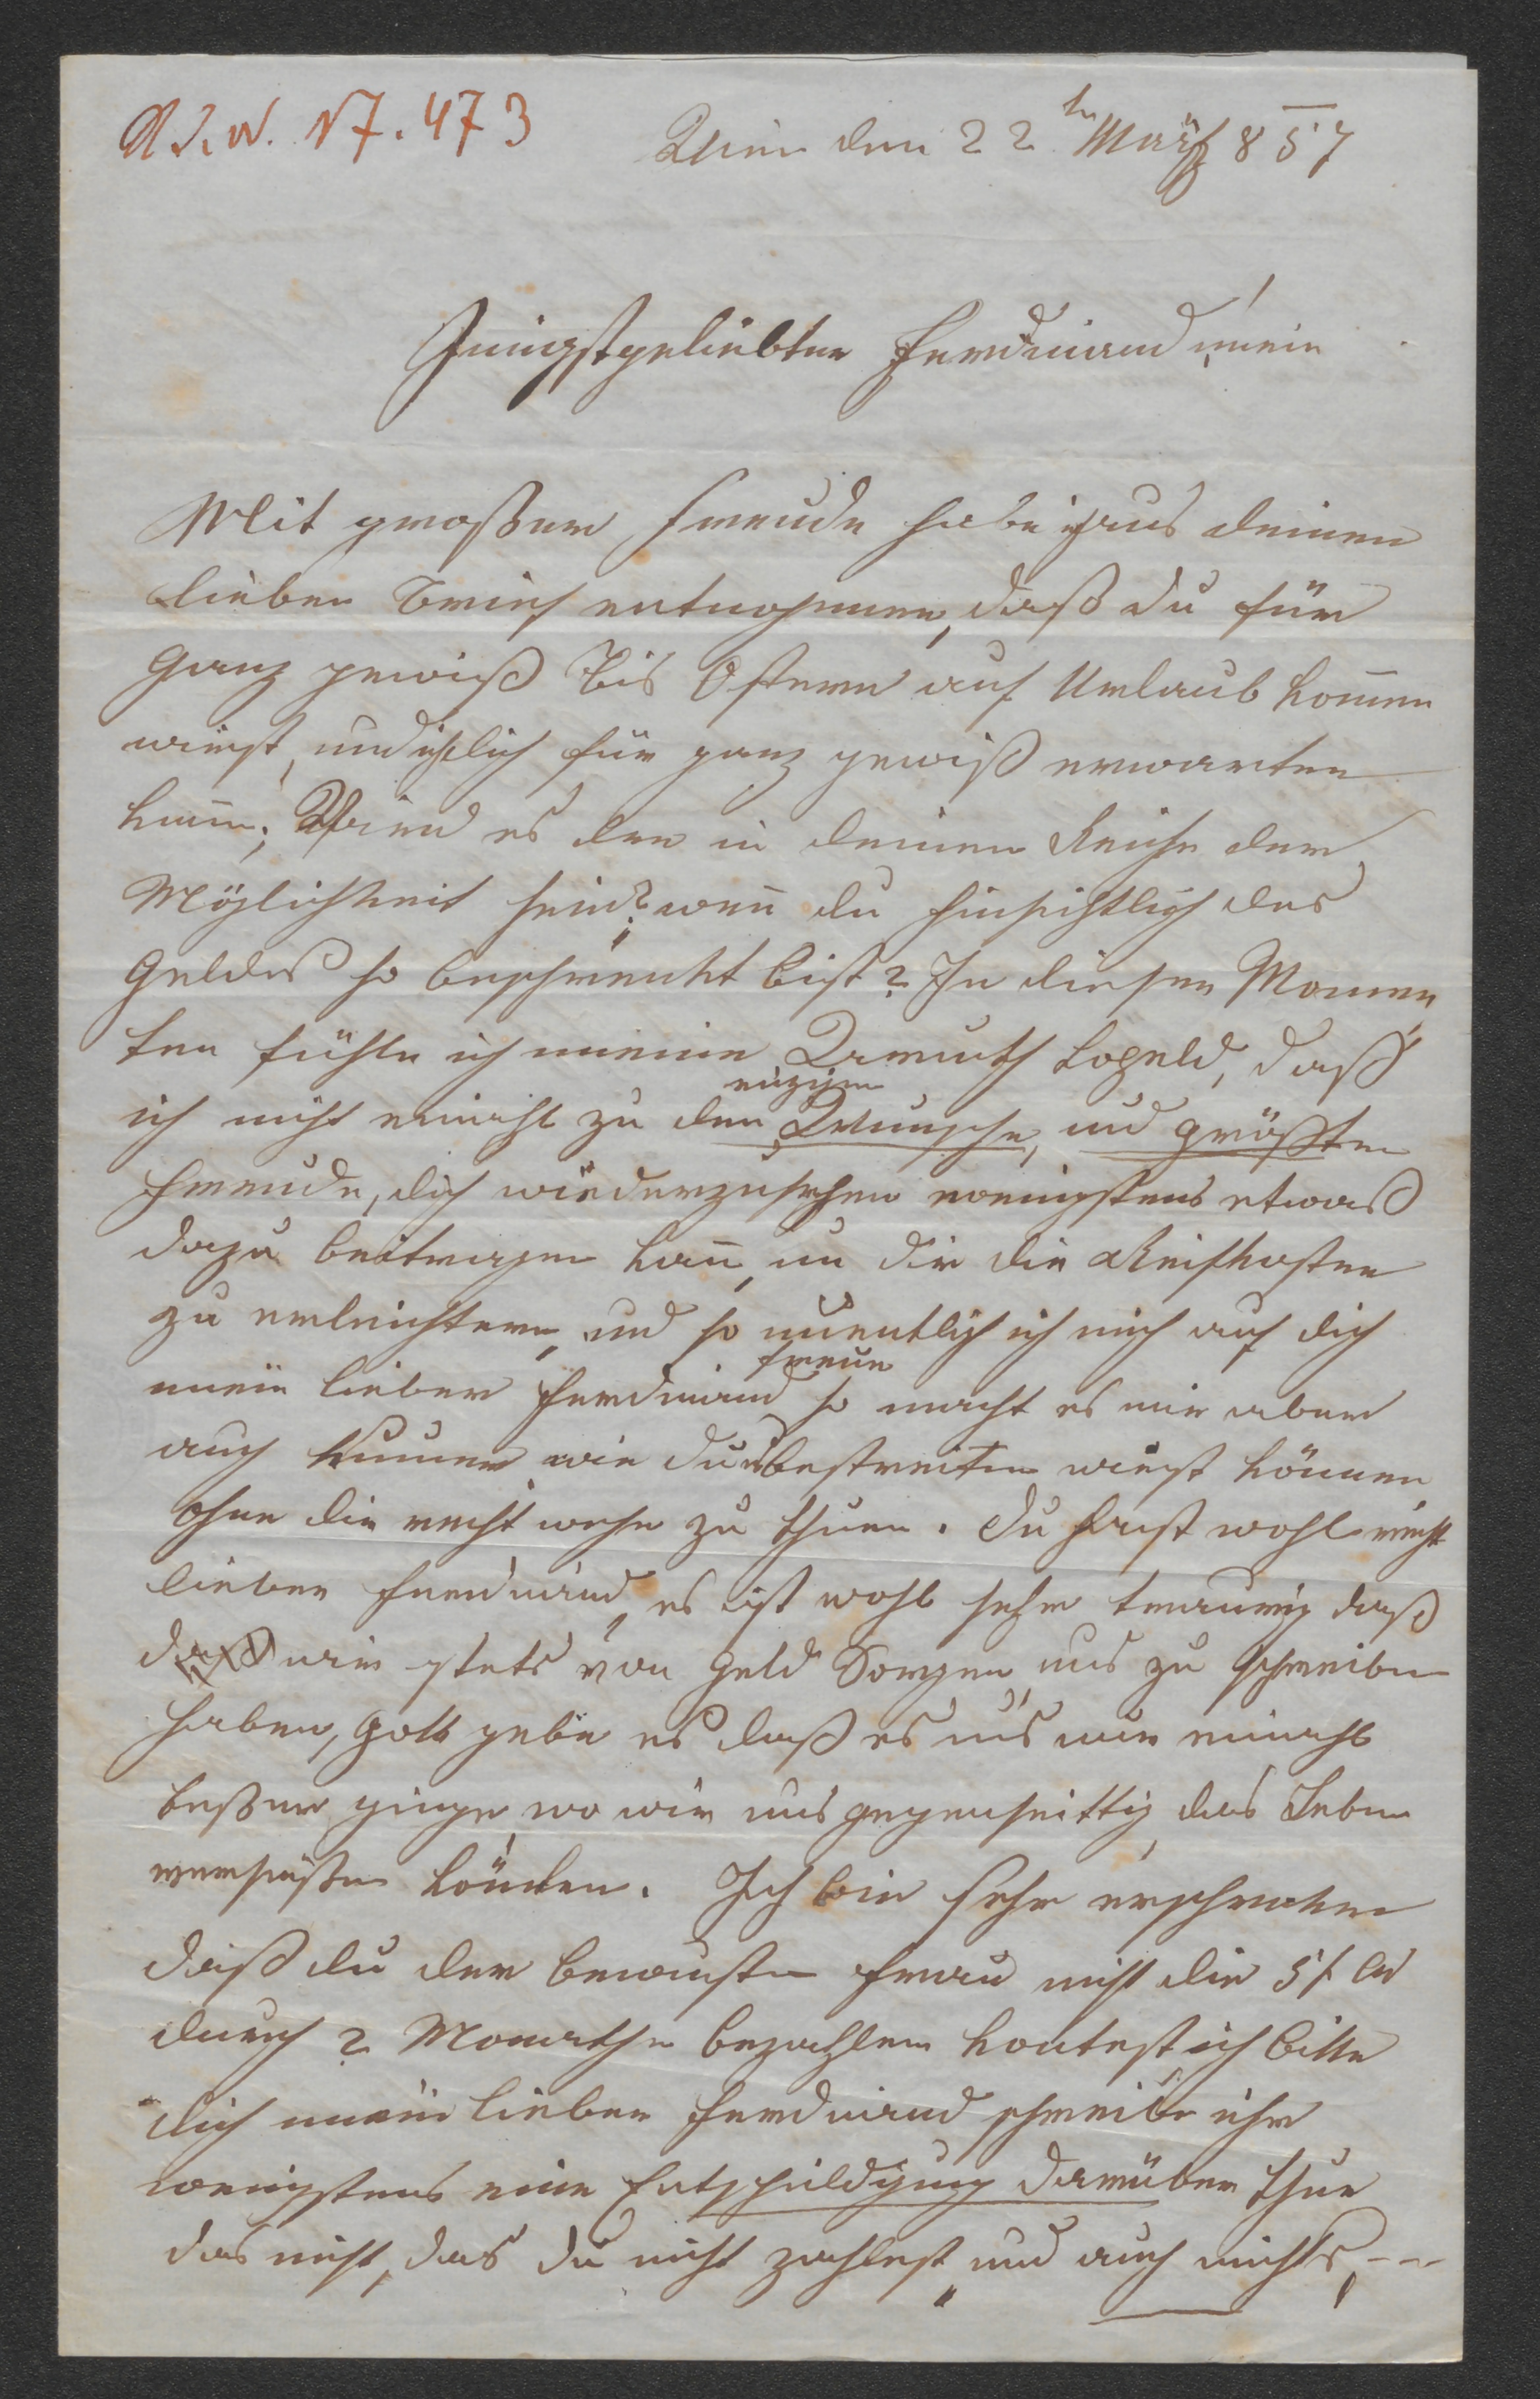 N. 17.473
Wien den 22ten März 857
Innigstgeliebter Ferdinand mein!
Mit großer Freude habe ich aus deinen
lieben Brief entnohmen, daß du für
Ganz gewiß bis Ostern auf Urlaub kom̄en
wirst, und ich dich für ganz gewiß erwarten
kan̄; Wird es den in deinen Reiche der
Möglichkeit sein? wen̄ du hinsichtlich des
Geldes so beschrenkt bist? In diesen Momen
ten fühle ich meine Armuth, daß
ich nicht einmahl zu den einzigen Wunsche, und größten
Freude, dich wiederzusehen wenigstens etwaß
dazu beitragen kan̄, um dir die Reiskosten
zu erleichtern, und so unentlich ich mich auf dich
mein lieber Ferdinand freue so macht es mir aber
auch Kummer wie du es bestreiten wirst können
ohne dir recht wehe zu thuen. Du hast wohl recht
lieber Ferdinand, es ist wohl sehr traurig daß
daß wir stets von Geld Sorgen uns zu schreiben
haben, Gott gebe es daß es uns nur einmahl
beßer ginge, wo wir uns gegenseittig das Leben
versüßen kön̄den. Ich bin sehr erschroken
daß du der bewusten Frau nicht die 5 f CM
durch 2 Monathe bezahlen kontest, ich bitte
dich mein lieber Ferdinand schreibe ihr
wenigstens eine Entschuldigung darüber thue
das nicht, das du nicht zahlest und auch nichts, --